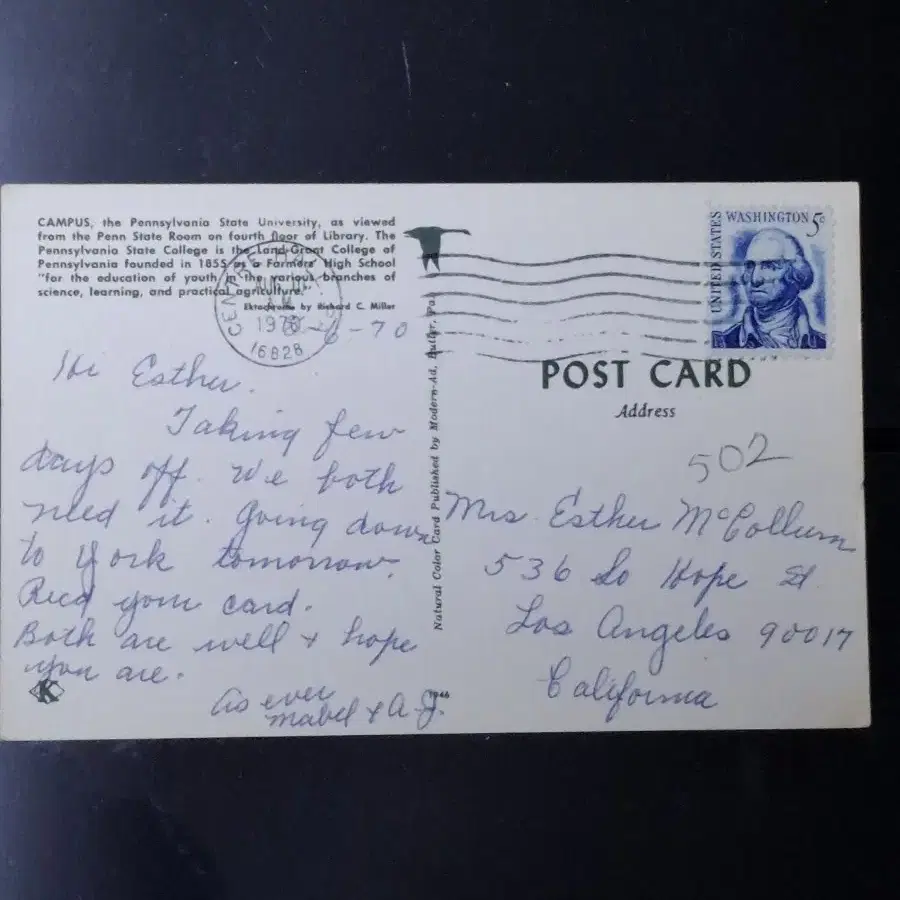 CAMPUS, the Pennsylvania State University, as viewed
from the Penn State Room on fourth floor of Library. The
Pennsylvania State College is the Land-Grant College of
Pennsylvania founded in 1855 as a Farmers' High School
"for the education of youth in the various branches of
science, learning, and practical agriculture."
Ektachrome by Richard C. Miller
1970
16828
6-70
Hi Esther.
Taking few
days off. We both
need it. Going down
to York tomorrow.
Recd your card.
Both are well + hope
you are.
As ever
Mabel + A.J.
K
Natural Color Card Published by Modern-Ad, Butler, Pa.
UNITED STATES
WASHINGTON 5c
POST CARD
Address
502
Mrs. Esther McCollum
536 So Hope St
Los Angeles 90017
California